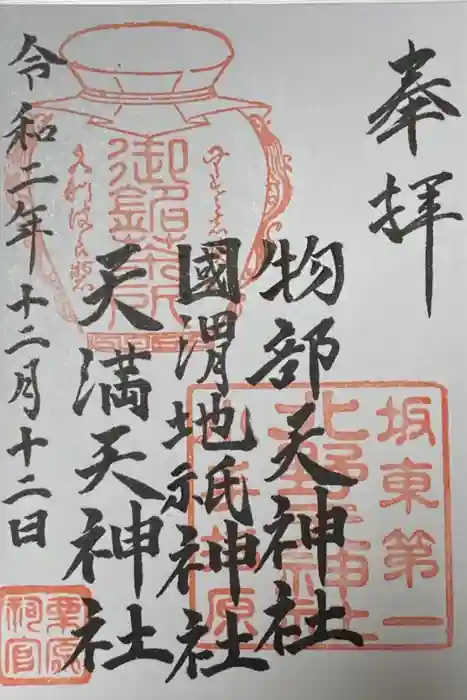 奉拝
物部天神社
國渭地祇神社
天満天神社
令和二年十二月十二日
坂東第一
北野天神社
御銘茶所
栗原
祠官